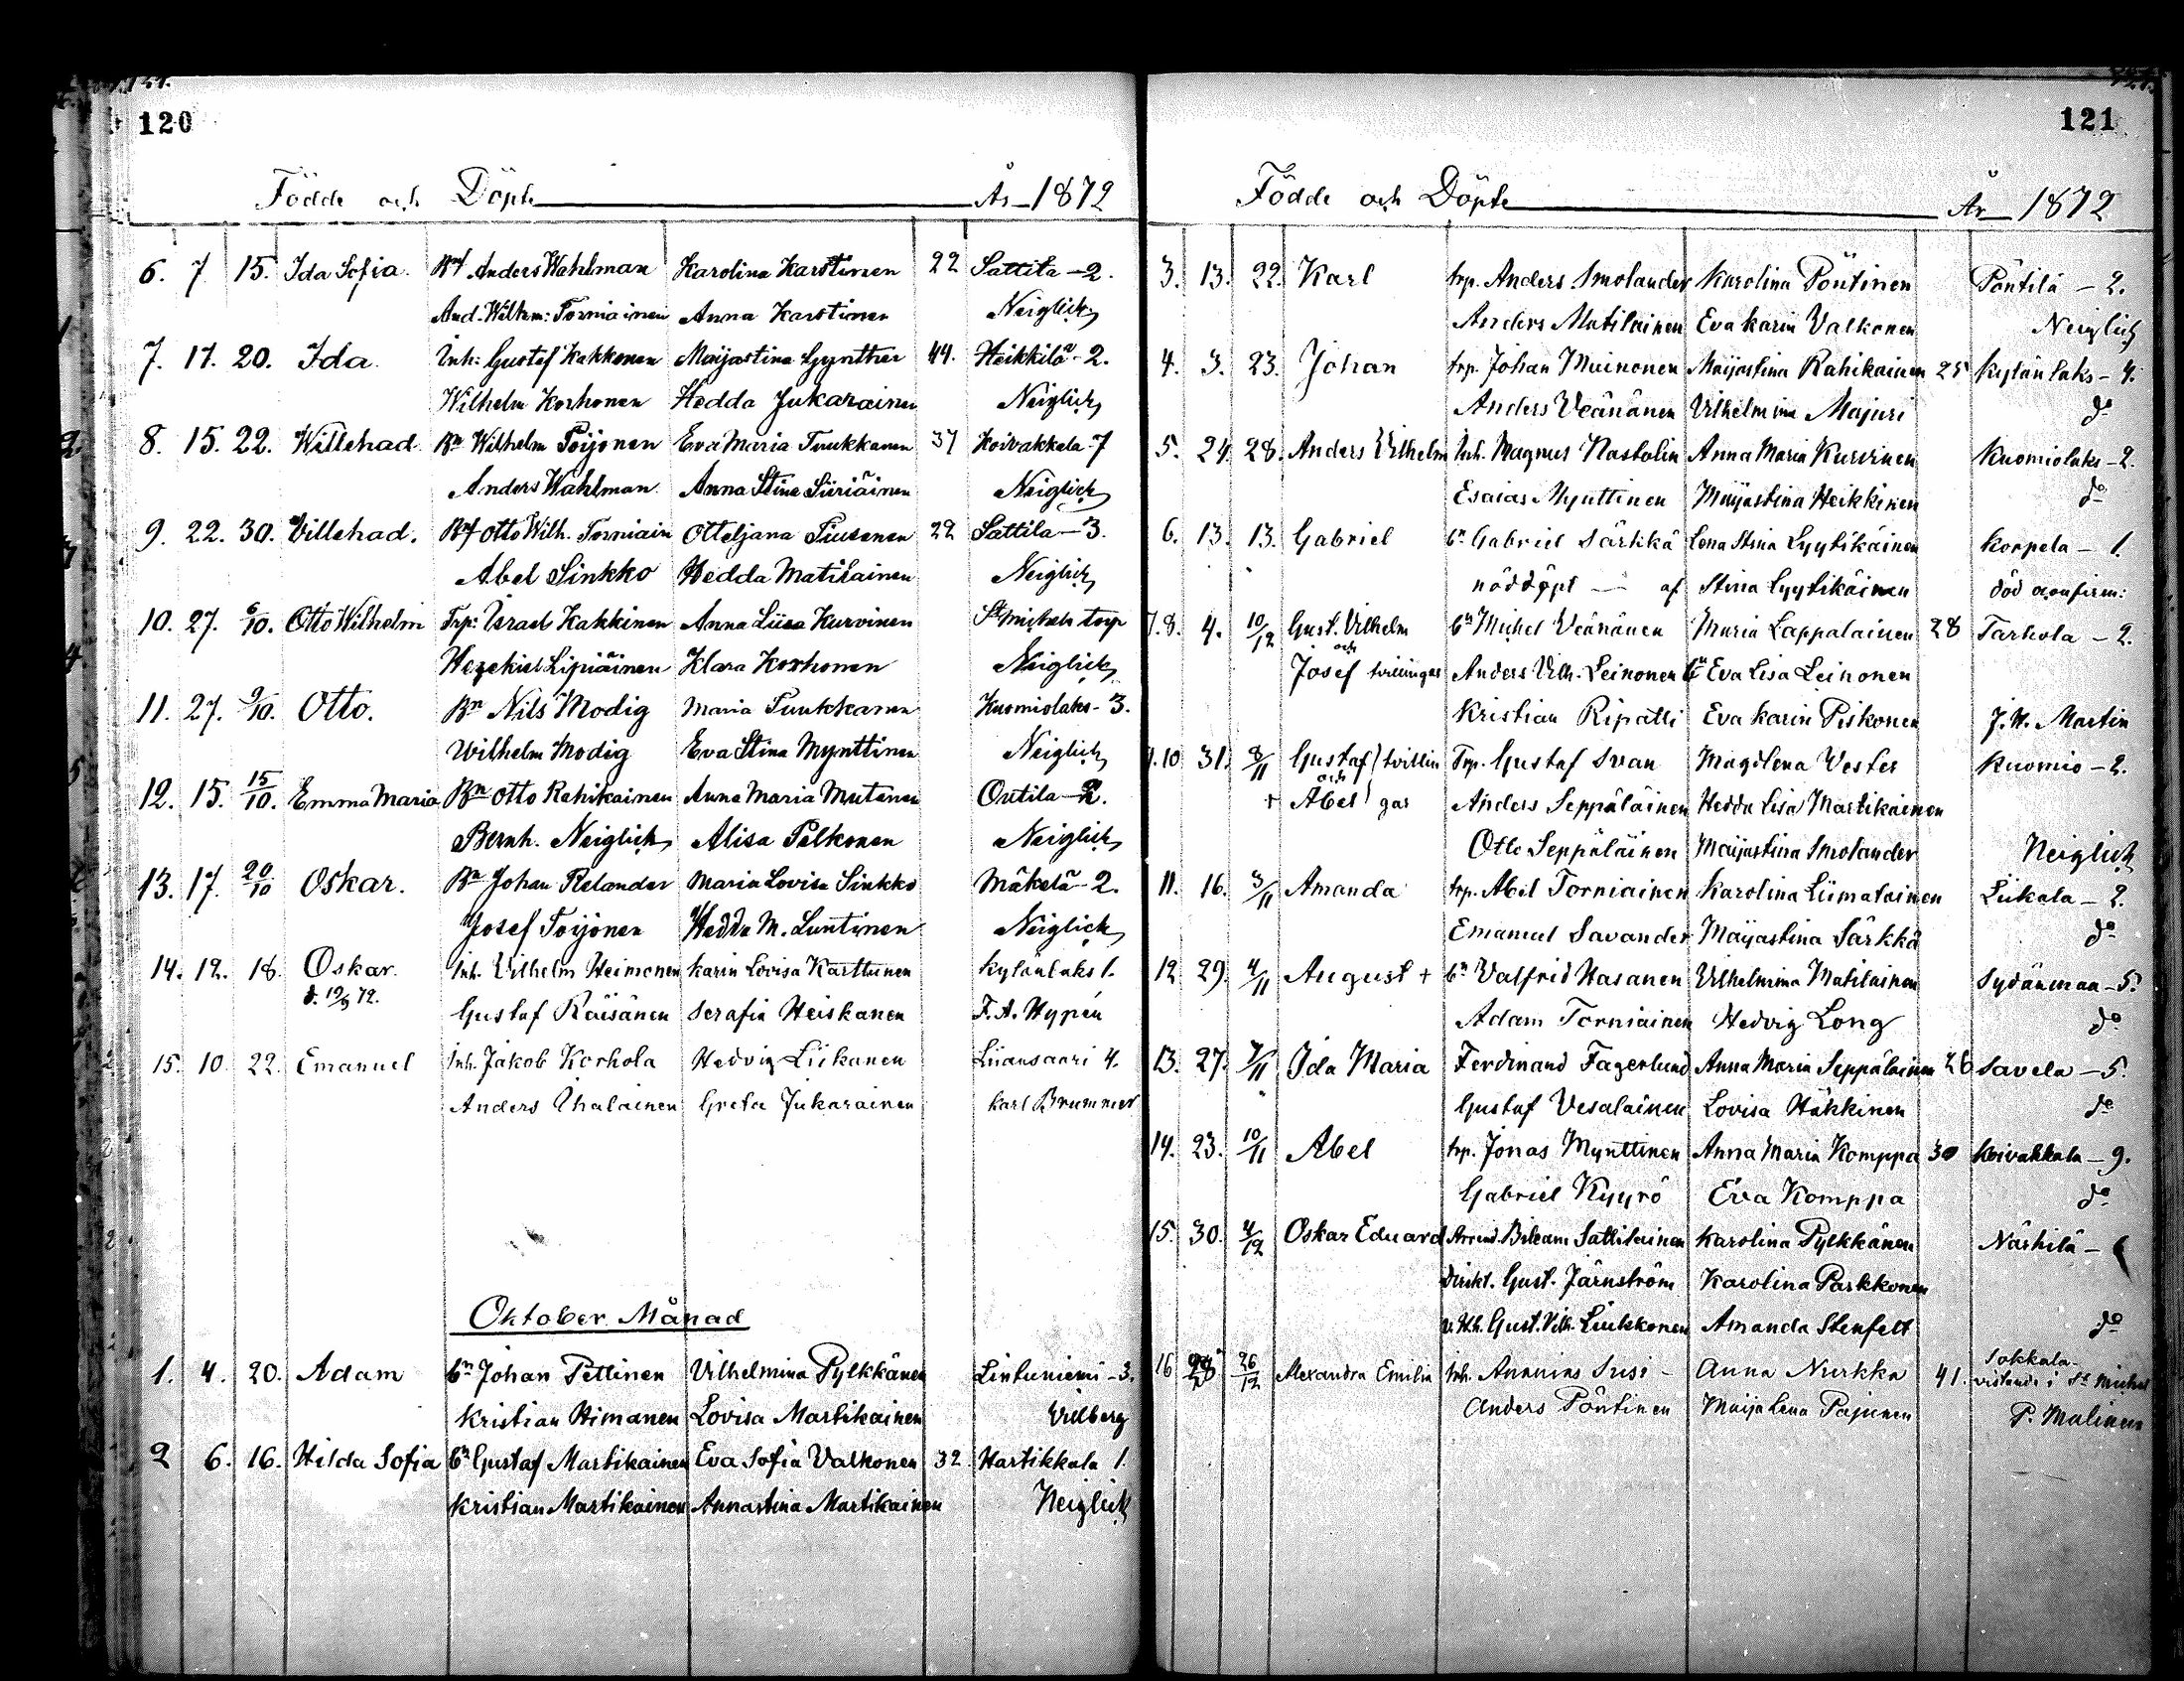 120
Födde och Döpte År 1872
6. 7 15. Ida Sofia. Anders Wahlman Karolina Karstinen 22 Sattila - 2.
And. Wilhm: Torniainen Anna Karstinen Neiglick
7. 17. 20. Ida. Inh: Gustaf Kakkonen Maijastina Gynther 44. Heikkilä - 2.
Wilhelm Korhonen Hedda Jukarainen Neiglick
8. 15. 22. Willehad. Bn Wilhelm Poijonen Eva Maria Tuukkanen 37 Koivakkala - 7
Anders Wahlman. Anna Stina Siiriäinen Neiglick
9. 22. 30. Villehad. Otto Wilh. Torniain Otteljana Tiusanen 22 Sattila - 3.
Abel Sinkko Hedda Matilainen Neiglick
10. 27. 6/10. Otto Wilhelm Trp: Israel Kakkinen Anna Liisa Kurvinen St Michels torp
Hezekiel Lipiäinen Klara Korhonen Neiglick
11. 27. 9/10. Otto. Bn Nils Modig Maria Tuukkanen Kuomiolaks - 3.
Wilhelm Modig Eva Stina Mynttinen Neiglick
12. 15. 15/10. Emma Maria Bn Otto Rahikainen Anna Maria Mutanen Outila - 2.
Bernh. Neiglick Alisa Pelkonen Neiglick
13. 17. 20/10 Oskar. Bn Johan Relander Maria Lovisa Sinkko Mäkelä - 2.
Josef Toijonen Hedda M. Luntinen Neiglick
14. 12. 18. Oskar. Inh. Vilhelm Heimonen Karin Lovisa Karttunen Kylänlaks 1.
d. 19/9 72. Gustaf Räisänen Serafia Heiskanen F. A. Hypén
15. 10. 22. Emanuel Inh. Jakob Korhola Hedvig Liikanen Liiansaari 4.
Anders Ihalainen Greta Jukarainen Karl Brummer
Oktober Månad
1. 4. 20. Adam bn Johan Pettinen Vilhelmina Pylkkänen Lintuniemi - 3.
Kristian Himanen Lovisa Martikainen Vilberg
2 6. 16. Hilda Sofia bn Gustaf Martikainen Eva Sofia Valkonen 32. Hartikkala 1.
Kristian Martikainen Annastina Martikainen Neiglick
121
Födde och Döpte År 1872
3. 13. 22. Karl trp. Anders Smolander Karolina Pöntinen Pöntilä - 2.
Anders Matilainen Eva Karin Valkonen Neiglick
4. 3. 23. Johan trp. Johan Muinonen Maijastina Rahikainen 25 Kylänlaks - 4.
Anders Veänänen Vilhelmina Majuri do
5. 24. 28. Anders Vilhelm Inh. Magnus Nastolin Anna Maria Kurvinen Kuomiolaks - 2.
Esaias Mynttinen Maijastina Heikkinen do
6. 13. 13. Gabriel bn Gabriel Särkkä Lena Stina Lyytikäinen Korpela - 1.
nöddöpt — af Stina Lyytikäinen död oconfirm:
7.8. 4. 10/12 Gust. Vilhelm bn Michel Veänänen Maria Lappalainen 28 Tarhola - 2.
och
Josef tvillingar Anders Vilh. Leinonen Eva Lisa Leinonen
Kristian Ripatti Eva Karin Piskonen J. H. Martin
9.10 31. 8/11 Gustaf tvillin Trp. Gustaf Svan Magdlena Vester Kuomio - 2.
och
+ Abel gar Anders Seppäläinen Hedda Lisa Martikainen
Otto Seppäläinen Maijastina Smolander Neiglick
11. 16. 3/11 Amanda trp. Abel Torniainen Karolina Liimatainen Liikala - 2.
Emanuel Savander Maijastina Särkkä do
12 29. 4/11 August + bn Valfrid Hasanen Vilhelmina Matilainen Sydänmaa - 5.
Adam Torniainen Hedvig Long do
13. 27. 7/11 Ida Maria Ferdinand Fagerlund Anna Maria Seppäläinen 26 Savela - 5.
Gustaf Vesalainen Lovisa Häkkinen do
14. 23. 10/11 Abel trp. Jonas Mynttinen Anna Maria Komppa 30 Koivakkala - 9.
Gabriel Kyyrö Eva Komppa do
15. 30. 4/12 Oskar Eduard Arrend. Bileam Sattilainen Karolina Pylkkänen Närhilä - 6
Direkt. Gust. Järnström Karolina Parkkonen
Gust. Vilh. Liukkonen Amanda Stenfelt do
16 26/12 Alexandra Emilia Inh. Ananias Susi - Anna Nurkka 41. Sokkala - vistande i St Michel
Anders Pöntinen Maija Lena Pajunen P. Malinen